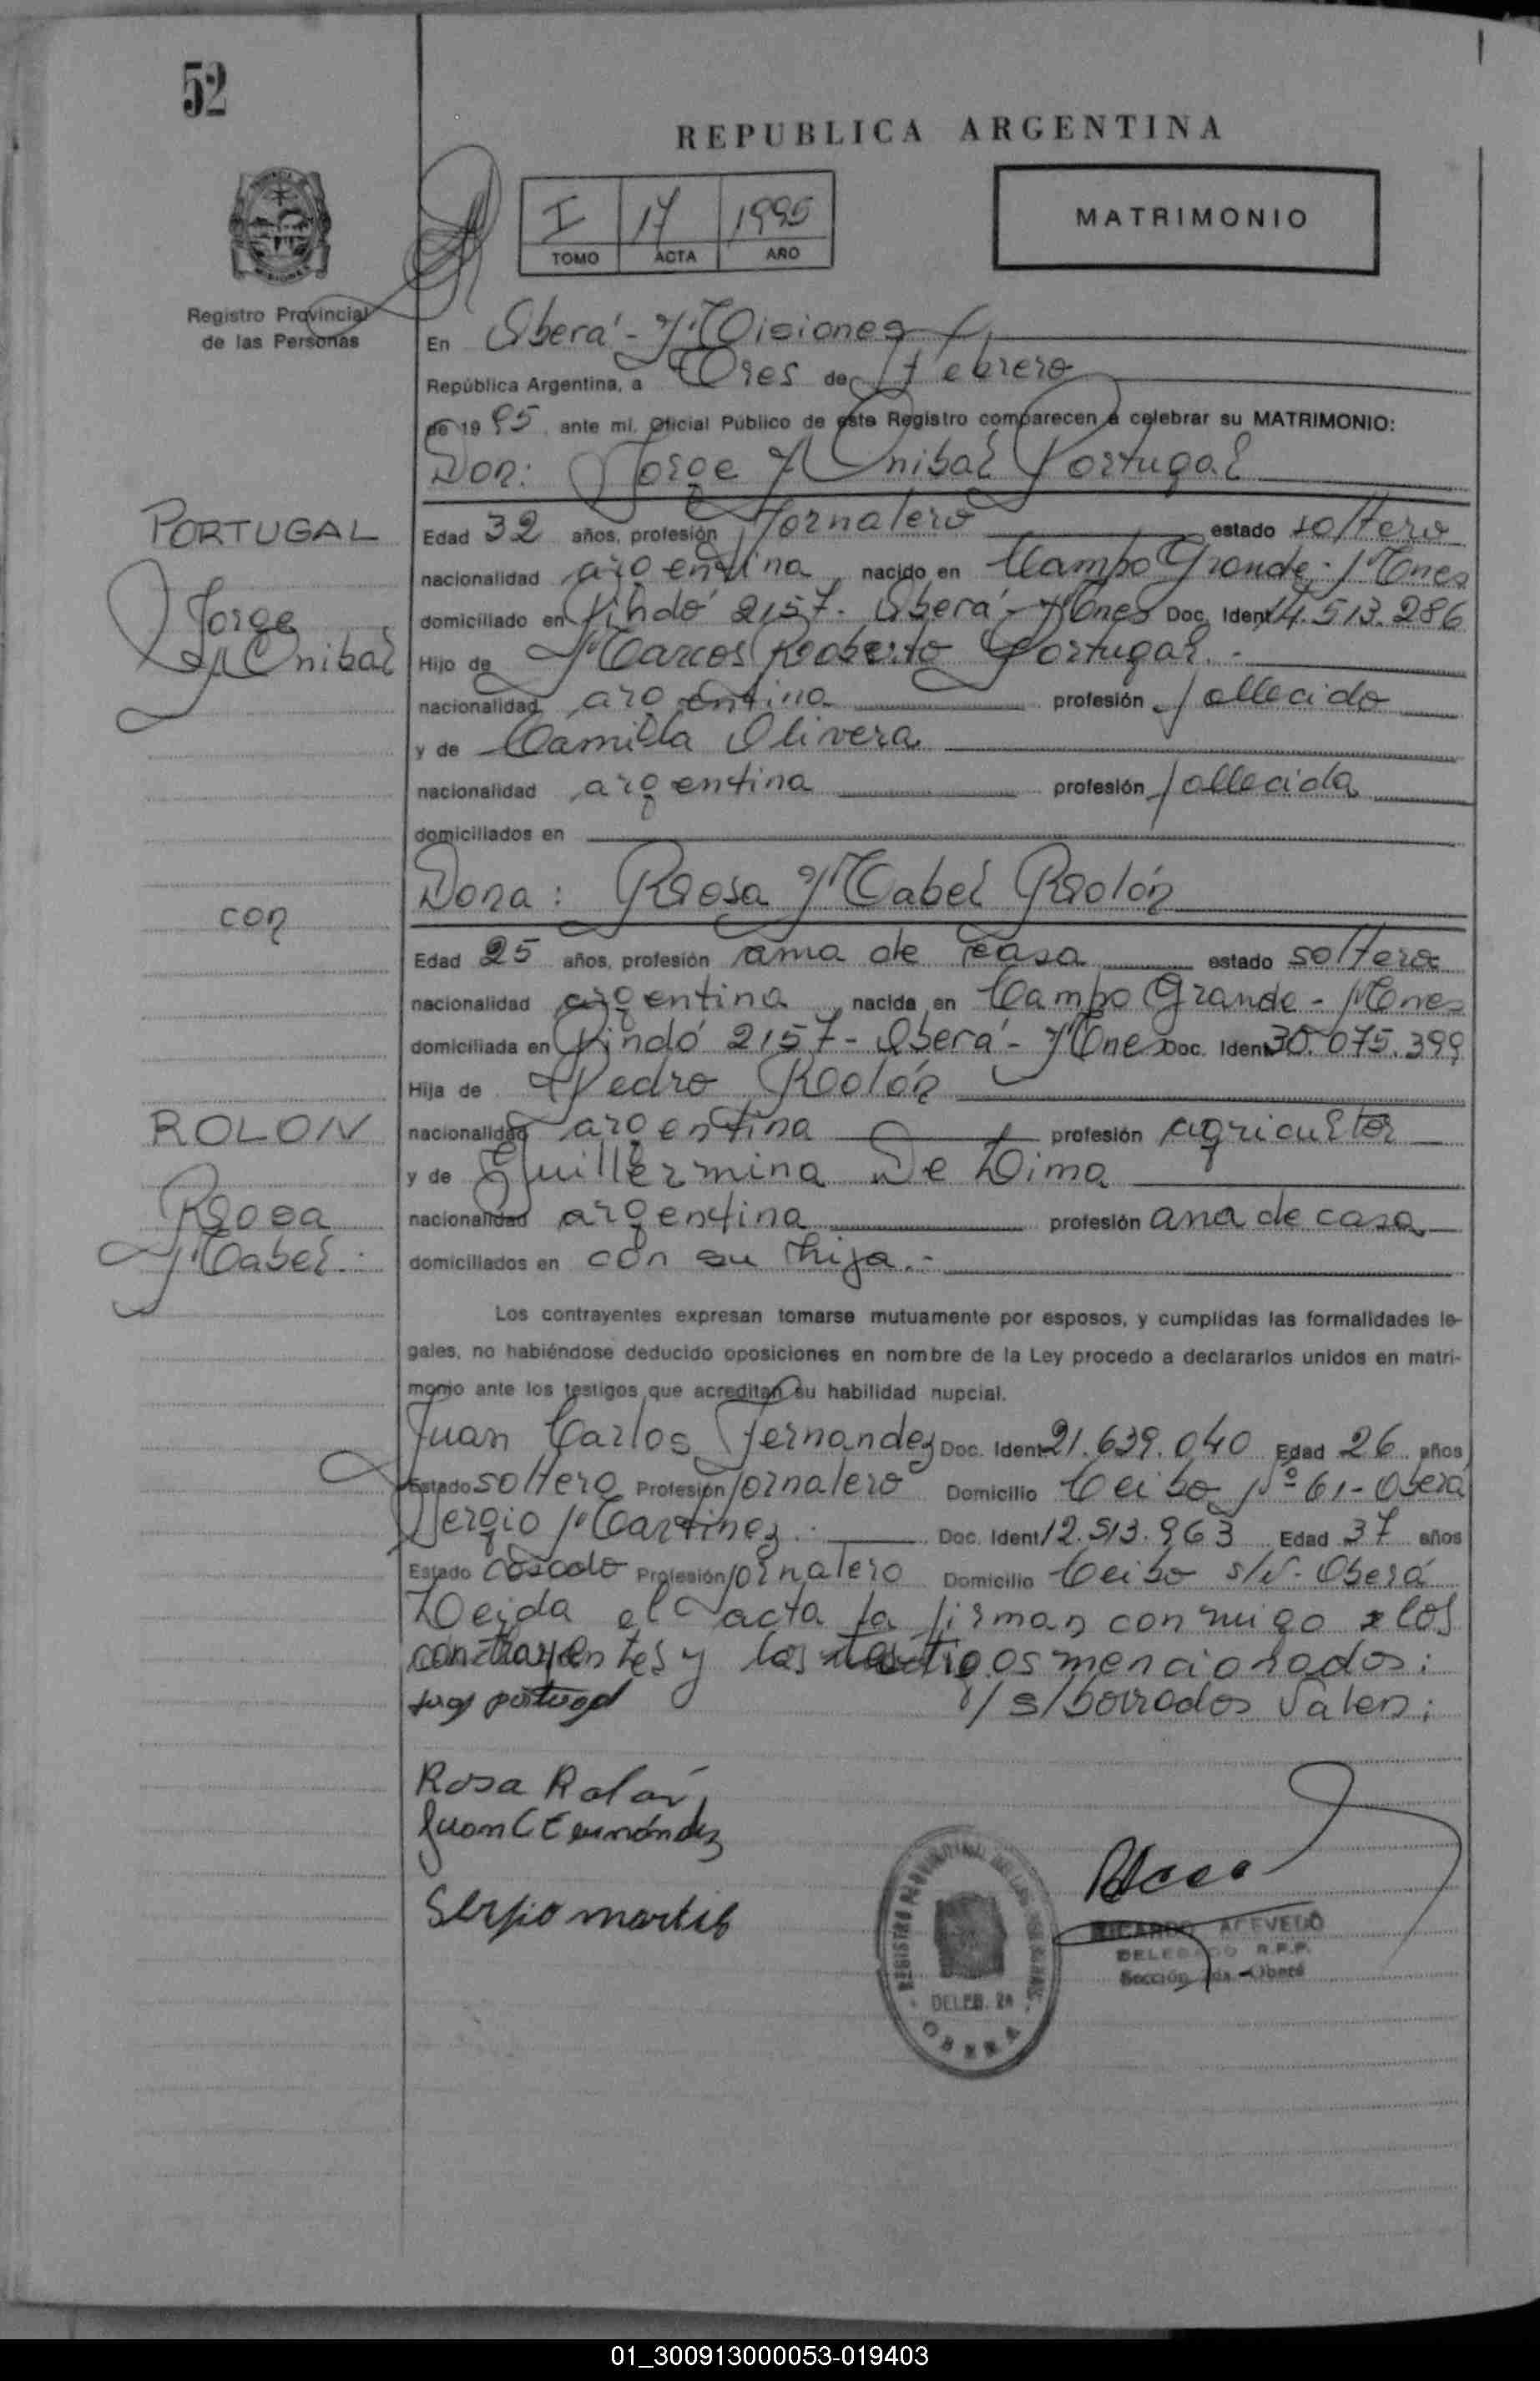 52
REPUBLICA ARGENTINA
I 17 1995
TOMO ACTA AÑO
MATRIMONIO
Registro Provincial
de las Personas
En Oberá - Misiones
República Argentina, a Tres de Febrero
de 1995, ante mi, Oficial Público de este Registro comparecen a celebrar su MATRIMONIO:
Don: Jorge Anibal Portugal
PORTUGAL
Jorge
Anibal
Edad 32 años, profesión Jornalero estado soltero
nacionalidad argentina, nacido en Campo Grande - Mnes
domiciliado en Pindó 2157 - Oberá - Mnes Doc. Ident 14.513.286
Hijo de Marcos Roberto Portugal.-
nacionalidad argentina profesión fallecido
y de Camila Olivera
nacionalidad argentina profesión fallecida
domiciliados en
Dona: Rosa Mabel Rolón
con
Edad 25 años, profesión ama de casa estado soltera
nacionalidad argentina, nacida en Campo Grande - Mnes
domiciliada en Pindó 2157 - Oberá - Mnes Doc. Ident 30.075.399
Hija de Pedro Rolón
ROLON
Rosa
Mabel.
nacionalidad argentina profesión agricultor
y de Guillermina De Lima
nacionalidad argentina profesión ana de casa
domiciliados en con su hija.-
Los contrayentes expresan tomarse mutuamente por esposos, y cumplidas las formalidades le-
gales, no habiéndose deducido oposiciones en nombre de la Ley procedo a declararlos unidos en matri-
monio ante los testigos que acreditan su habilidad nupcial.
Juan Carlos Fernandez Doc. Ident 21.639.040 Edad 26 años
Estado soltero Profesión jornalero Domicilio Ceibo Nº 61 - Oberá
Sergio Martinez. Doc. Ident 12.513.963 Edad 37 años
Estado casado Profesión jornalero Domicilio Ceibo s/N - Oberá
Leida el acta la firman conmigo los
contrayentes y los testigos mencionados:
s/borrados valen:
portugal
Rosa Rolón
Juan C Fernández
Sergio
REGISTRO PROVINCIAL DE LAS PERSONAS
DELEG. 2a
OBERA
RICARDO ACEVEDO
DELEGADO R.P.P.
Sección 2da - Oberá
01_300913000053-019403